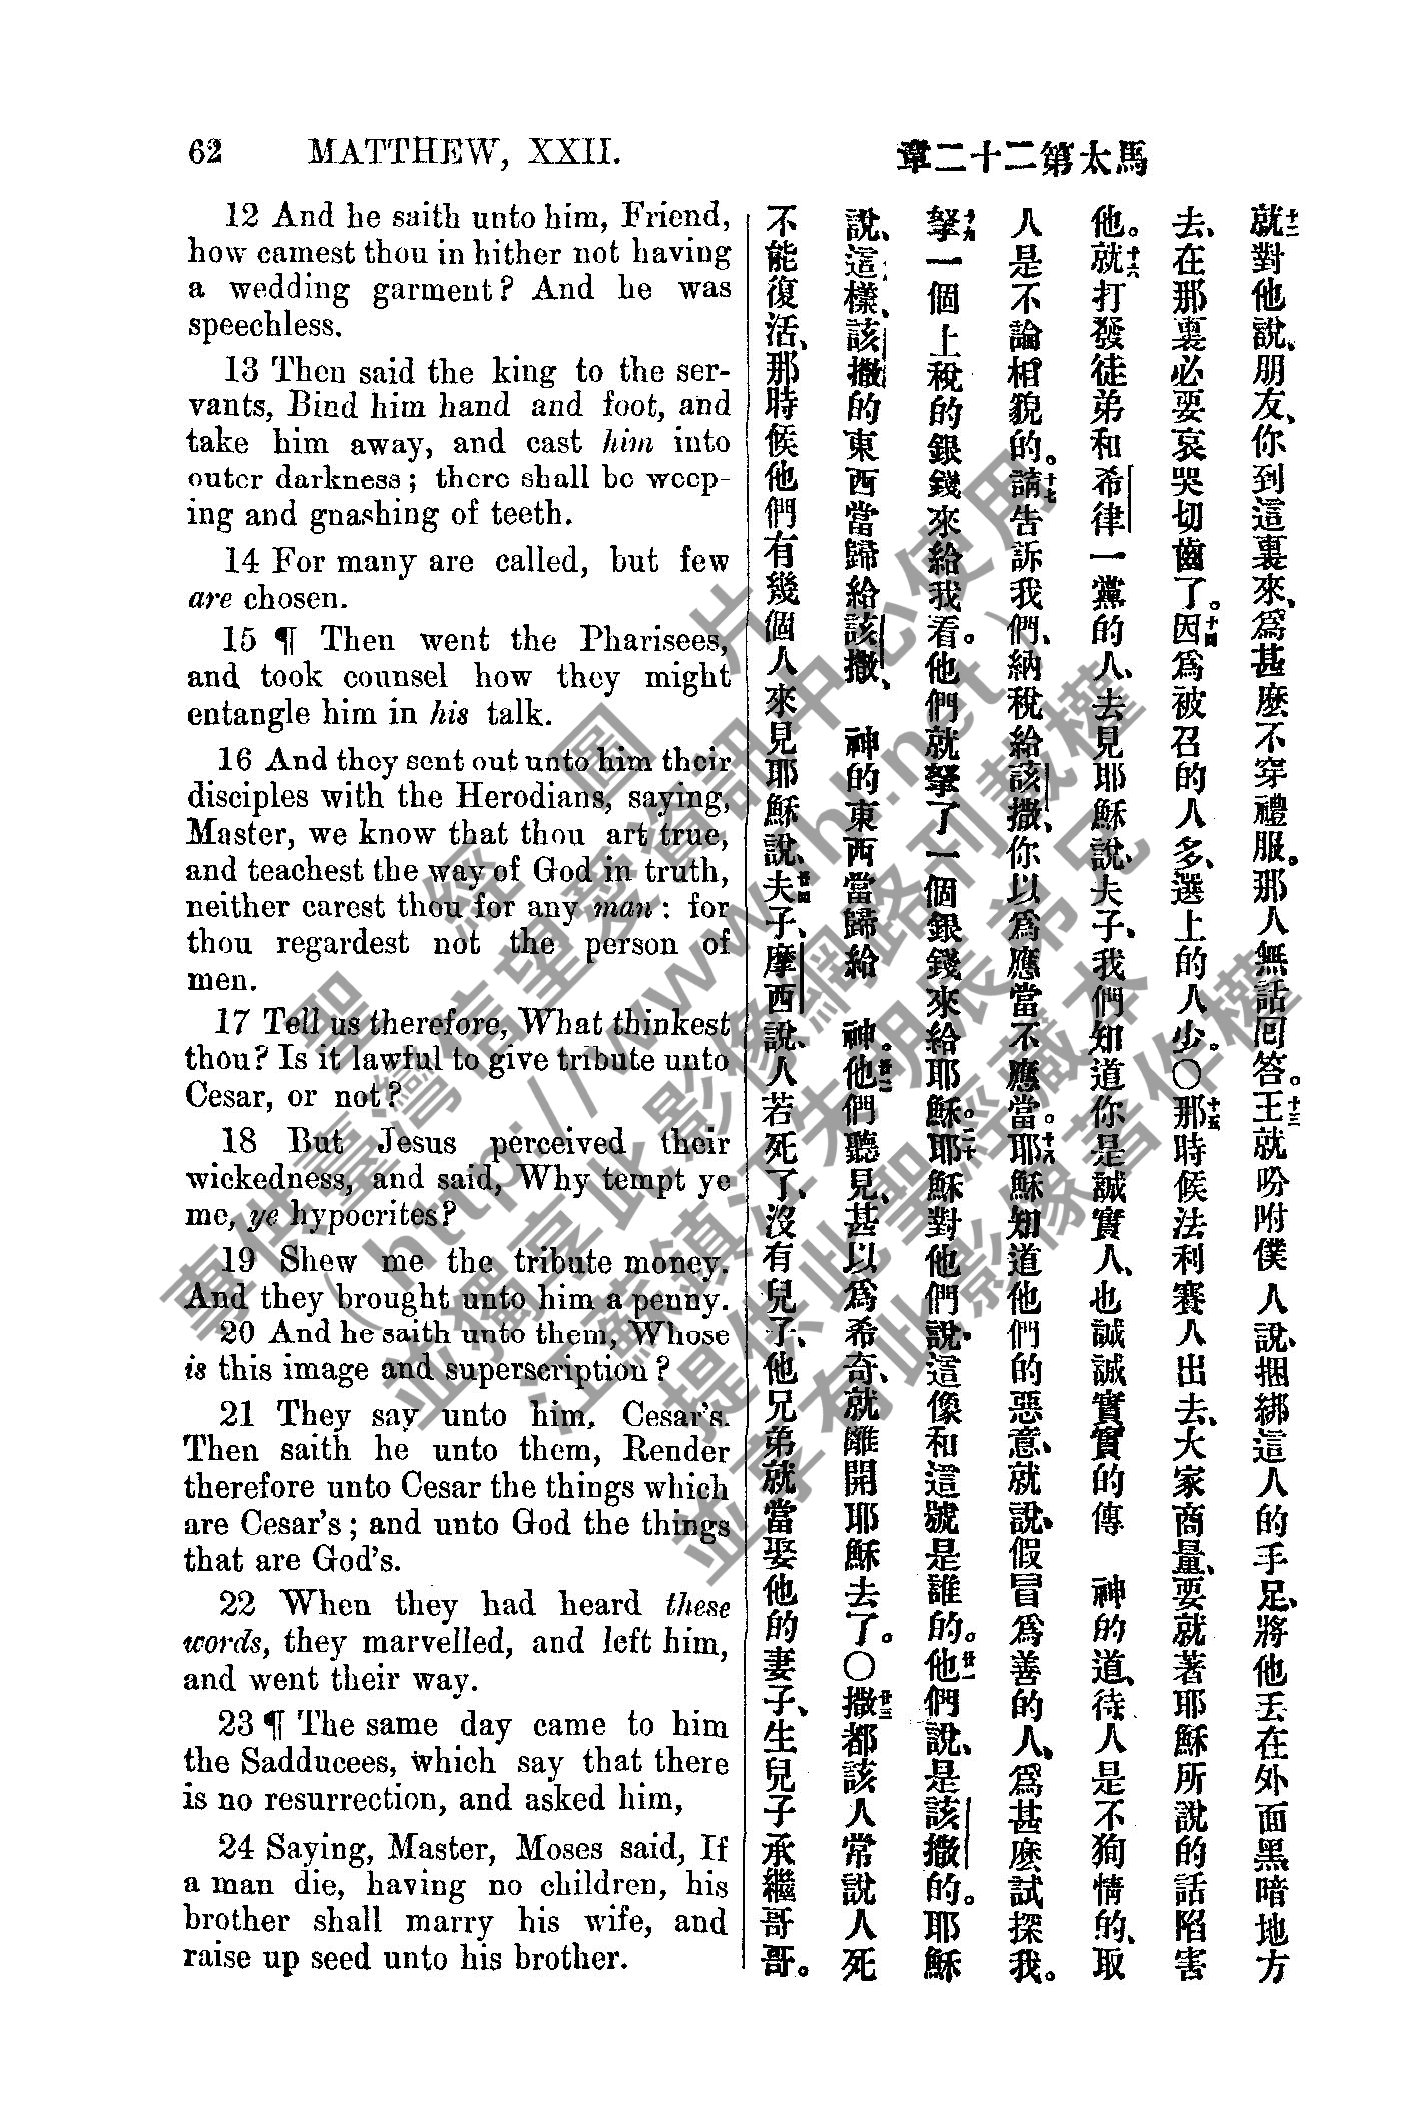 62 MATTHEW, XXII.
12 And he saith unto him, Friend,
how camest thou in hither not having
a wedding garment? And he was
speechless.
13 Then said the king to the ser-
vants, Bind him hand and foot, and
take him away, and cast him into
outer darkness; there shall be weep-
ing and gnashing of teeth.
14 For many are called, but few
are chosen.
15 ¶ Then went the Pharisees,
and took counsel how they might
entangle him in his talk.
16 And they sent out unto him their
disciples with the Herodians, saying,
Master, we know that thou art true,
and teachest the way of God in truth,
neither carest thou for any man: for
thou regardest not the person of
men.
17 Tell us therefore, What thinkest
thou? Is it lawful to give tribute unto
Cesar, or not?
18 But Jesus perceived their
wickedness, and said, Why tempt ye
me, ye hypocrites?
19 Shew me the tribute money.
And they brought unto him a penny.
20 And he saith unto them, Whose
is this image and superscription?
21 They say unto him, Cesar's.
Then saith he unto them, Render
therefore unto Cesar the things which
are Cesar's; and unto God the things
that are God's.
22 When they had heard these
words, they marvelled, and left him,
and went their way.
23 ¶ The same day came to him
the Sadducees, which say that there
is no resurrection, and asked him,
24 Saying, Master, Moses said, If
a man die, having no children, his
brother shall marry his wife, and
raise up seed unto his brother.
馬太第二十二章
十二就對他說、朋友、你到這裏來、爲甚麽不穿禮服。那人無話回答。十三王就吩咐僕人說、捆綁這人的手足、將他丟在外面黑暗地方
去、在那裏必要哀哭切齒了。十四因爲被召的人多、選上的人少。〇十五那時候法利賽人出去、大家商量、要就著耶穌所說的話陷害
他。十六就打發徒弟和希律一黨的人、去見耶穌說、夫子、我們知道你是誠實人、也誠誠實實的傳 神的道、待人是不狥情的、取
人是不論相貌的。十七請告訴我們、納稅給該撒、你以爲應當不應當。十八耶穌知道他們的惡意、就說、假冒爲善的人、爲甚麽試探我。
十九拏一個上稅的銀錢來給我看。他們就拏了一個銀錢來給耶穌。二十耶穌對他們說、這像和這號是誰的。廿一他們說、是該撒的。耶穌
說、這樣、該撒的東西當歸給該撒、 神的東西當歸給 神。廿二他們聽見、甚以爲希奇、就離開耶穌去了。〇廿三撒都該人常說人死
不能復活、那時候他們有幾個人來見耶穌說、廿四夫子、摩西說、人若死了、沒有兒子、他兄弟就當娶他的妻子、生兒子承繼哥哥。
聖經圖片
專供臺灣信望愛資訊中心使用
（http://www.fhl.net）
並獨享此影像網路刊載權
江蘇鎮江朱明辰弟兄
提供此聖經藏本
並享有此影像著作權